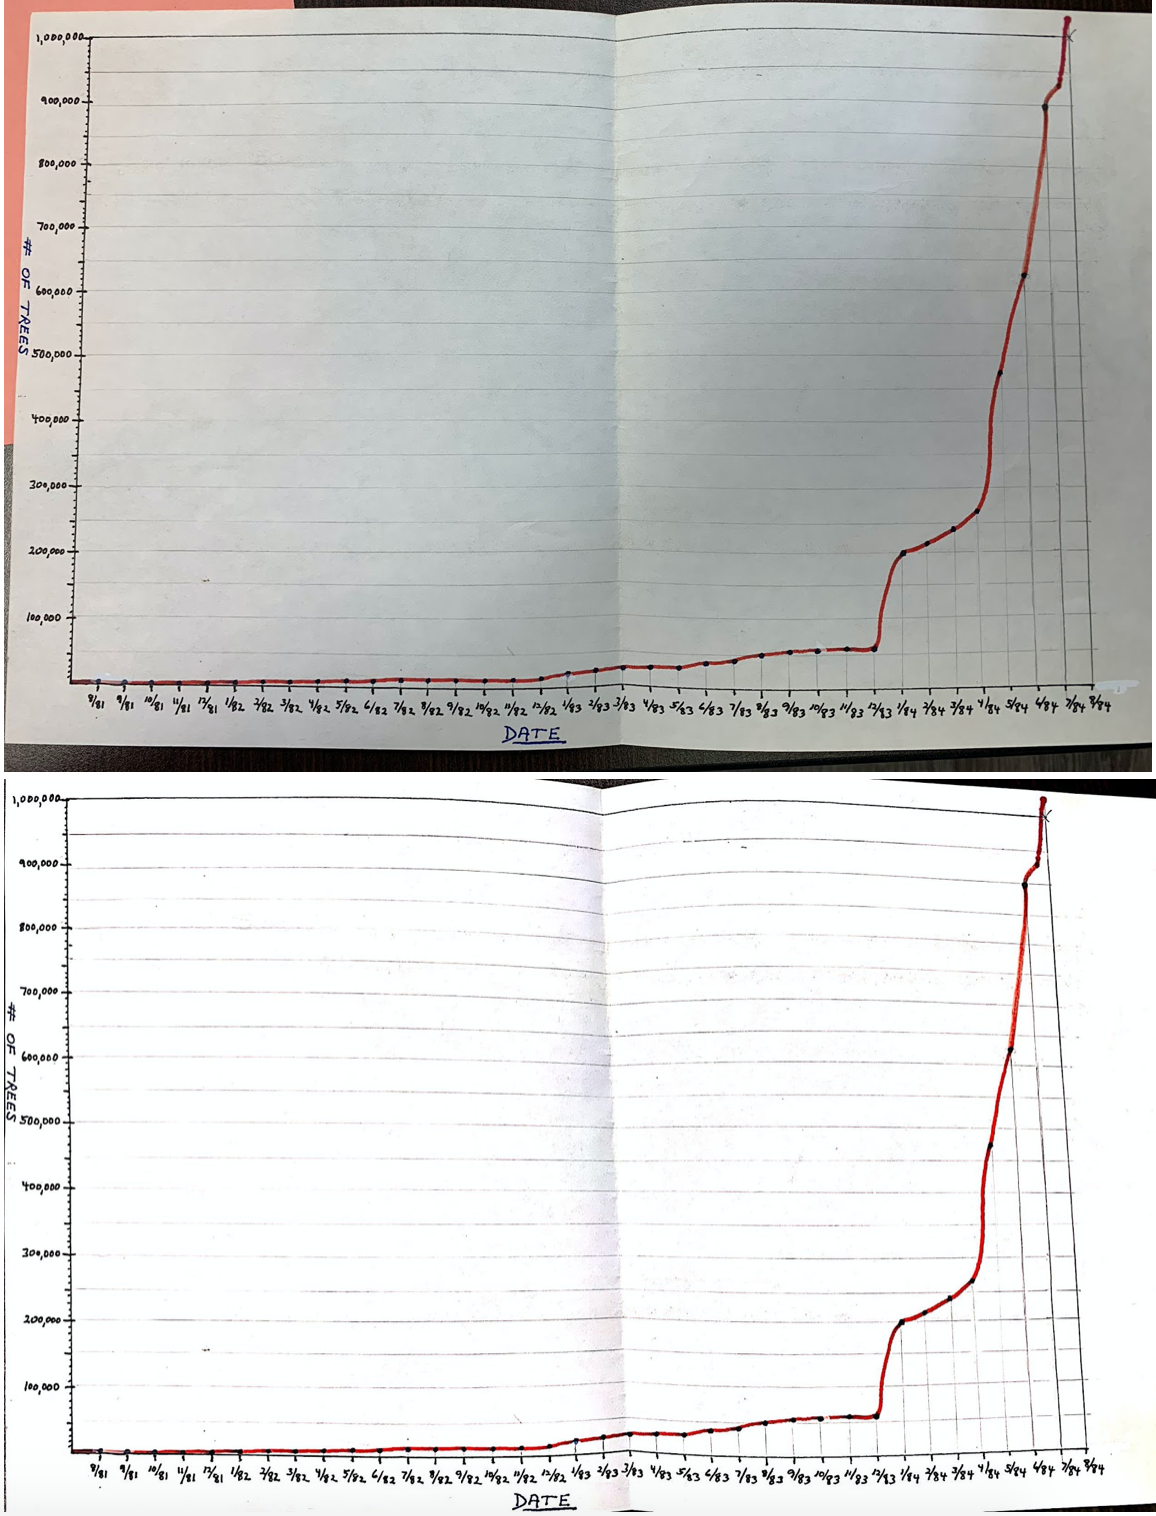 1,000,000
900,000
800,000
700,000
# OF TREES
600,000
500,000
400,000
300,000
200,000
100,000
8/81 9/81 10/81 11/81 12/81 1/82 2/82 3/82 4/82 5/82 6/82 7/82 8/82 9/82 10/82 11/82 12/82 1/83 2/83 3/83 4/83 5/83 6/83 7/83 8/83 9/83 10/83 11/83 12/83 1/84 2/84 3/84 4/84 5/84 6/84 7/84 8/84
DATE
1,000,000
900,000
800,000
700,000
# OF TREES
600,000
500,000
400,000
300,000
200,000
100,000
8/81 9/81 10/81 11/81 12/81 1/82 2/82 3/82 4/82 5/82 6/82 7/82 8/82 9/82 10/82 11/82 12/82 1/83 2/83 3/83 4/83 5/83 6/83 7/83 8/83 9/83 10/83 11/83 12/83 1/84 2/84 3/84 4/84 5/84 6/84 7/84 8/84
DATE